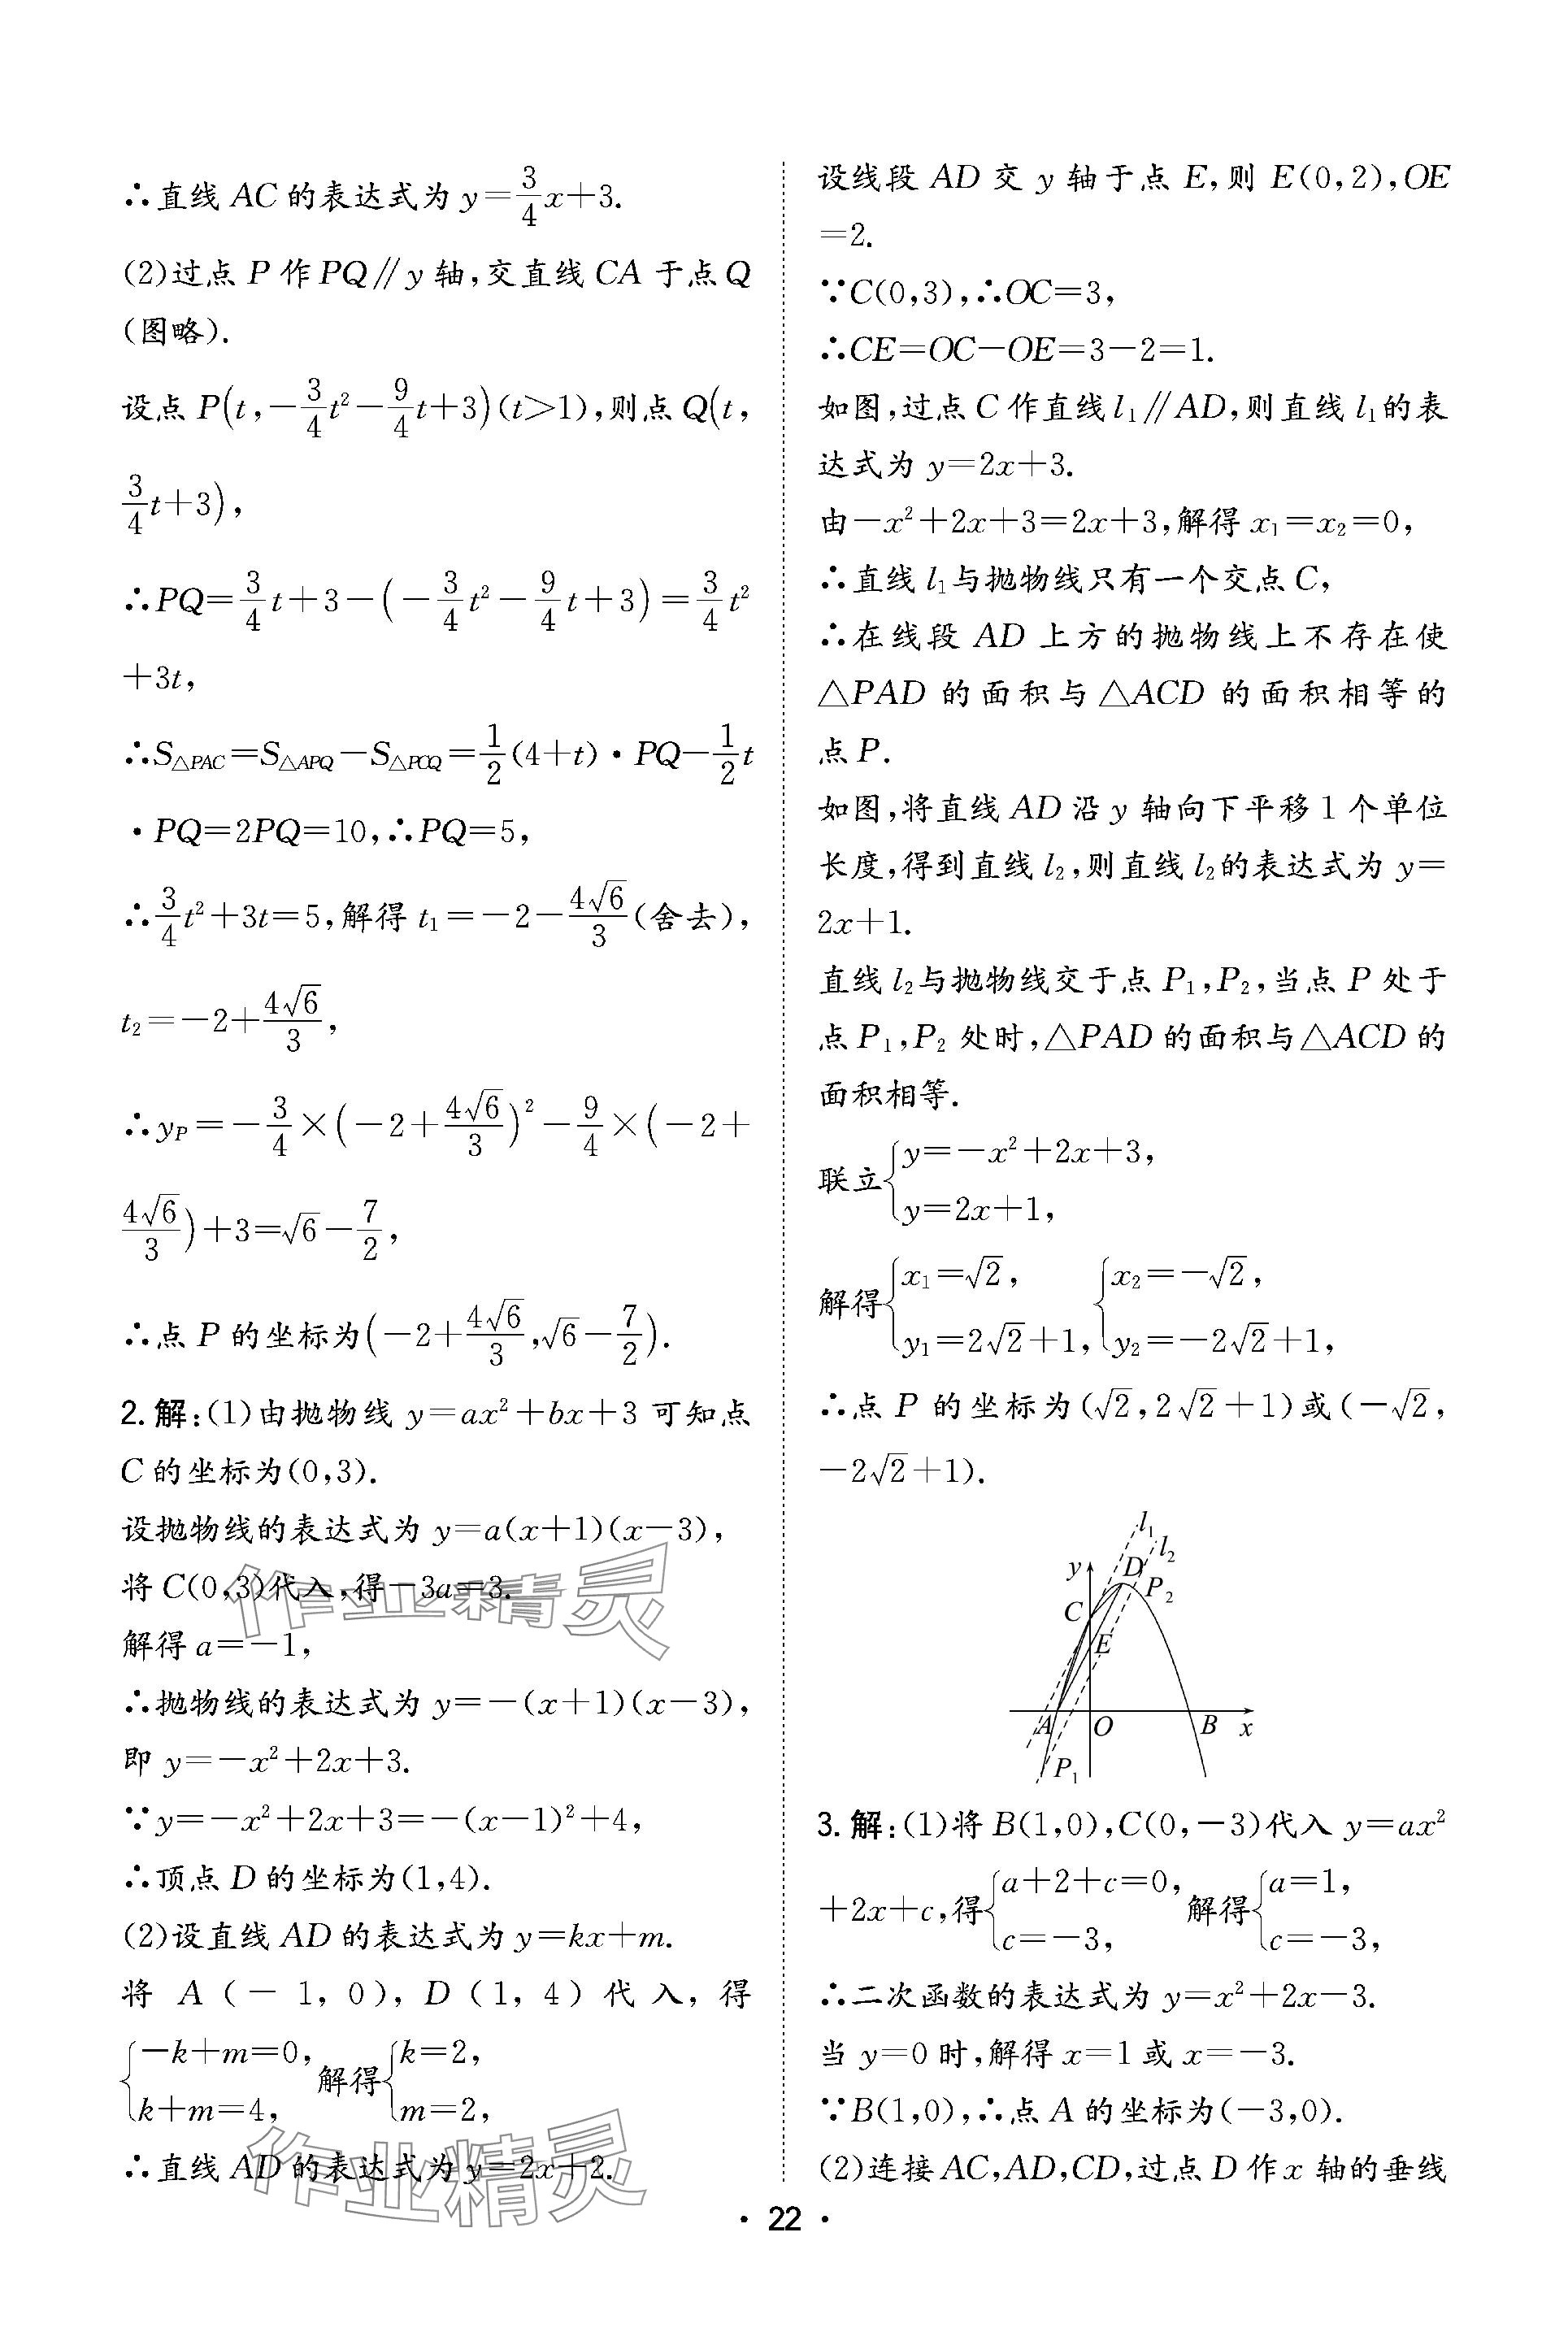 ∴直线 AC 的表达式为 y=3/4x+3.
(2)过点 P 作 PQ∥y 轴,交直线 CA 于点 Q
(图略).
设点 P(t,-3/4t²-9/4t+3)(t>1),则点 Q(t,
3/4t+3),
∴PQ=3/4t+3-(-3/4t²-9/4t+3)=3/4t²
+3t,
∴S△PAC=S△APQ-S△PCQ=1/2(4+t)·PQ-1/2t
·PQ=2PQ=10,∴PQ=5,
∴3/4t²+3t=5,解得 t₁=-2-4√6/3(舍去),
t₂=-2+4√6/3,
∴y_P=-3/4×(-2+4√6/3)²-9/4×(-2+
4√6/3)+3=√6-7/2,
∴点 P 的坐标为(-2+4√6/3,√6-7/2).
2.解:(1)由抛物线 y=ax²+bx+3 可知点
C 的坐标为(0,3).
设抛物线的表达式为 y=a(x+1)(x-3),
将 C(0,3)代入,得-3a=3.
解得 a=-1,
∴抛物线的表达式为 y=-(x+1)(x-3),
即 y=-x²+2x+3.
∵y=-x²+2x+3=-(x-1)²+4,
∴顶点 D 的坐标为(1,4).
(2)设直线 AD 的表达式为 y=kx+m.
将 A(-1,0),D(1,4)代入,得
{-k+m=0, k+m=4, 解得{k=2, m=2,
∴直线 AD 的表达式为 y=2x+2.
作业精灵
作业精灵
设线段 AD 交 y 轴于点 E,则 E(0,2),OE
=2.
∵C(0,3),∴OC=3,
∴CE=OC-OE=3-2=1.
如图,过点 C 作直线 l₁∥AD,则直线 l₁的表
达式为 y=2x+3.
由-x²+2x+3=2x+3,解得 x₁=x₂=0,
∴直线 l₁与抛物线只有一个交点 C,
∴在线段 AD 上方的抛物线上不存在使
△PAD 的面积与△ACD 的面积相等的
点 P.
如图,将直线 AD 沿 y 轴向下平移 1 个单位
长度,得到直线 l₂,则直线 l₂的表达式为 y=
2x+1.
直线 l₂与抛物线交于点 P₁,P₂,当点 P 处于
点 P₁,P₂ 处时,△PAD 的面积与△ACD 的
面积相等.
联立{y=-x²+2x+3, y=2x+1,
解得{x₁=√2, y₁=2√2+1,{x₂=-√2, y₂=-2√2+1,
∴点 P 的坐标为(√2,2√2+1)或(-√2,
-2√2+1).
l₁
l₂
y
D
P₂
C
E
A
O
B
x
P₁
3.解:(1)将 B(1,0),C(0,-3)代入 y=ax²
+2x+c,得{a+2+c=0, c=-3, 解得{a=1, c=-3,
∴二次函数的表达式为 y=x²+2x-3.
当 y=0 时,解得 x=1 或 x=-3.
∵B(1,0),∴点 A 的坐标为(-3,0).
(2)连接 AC,AD,CD,过点 D 作 x 轴的垂线
· 22 ·